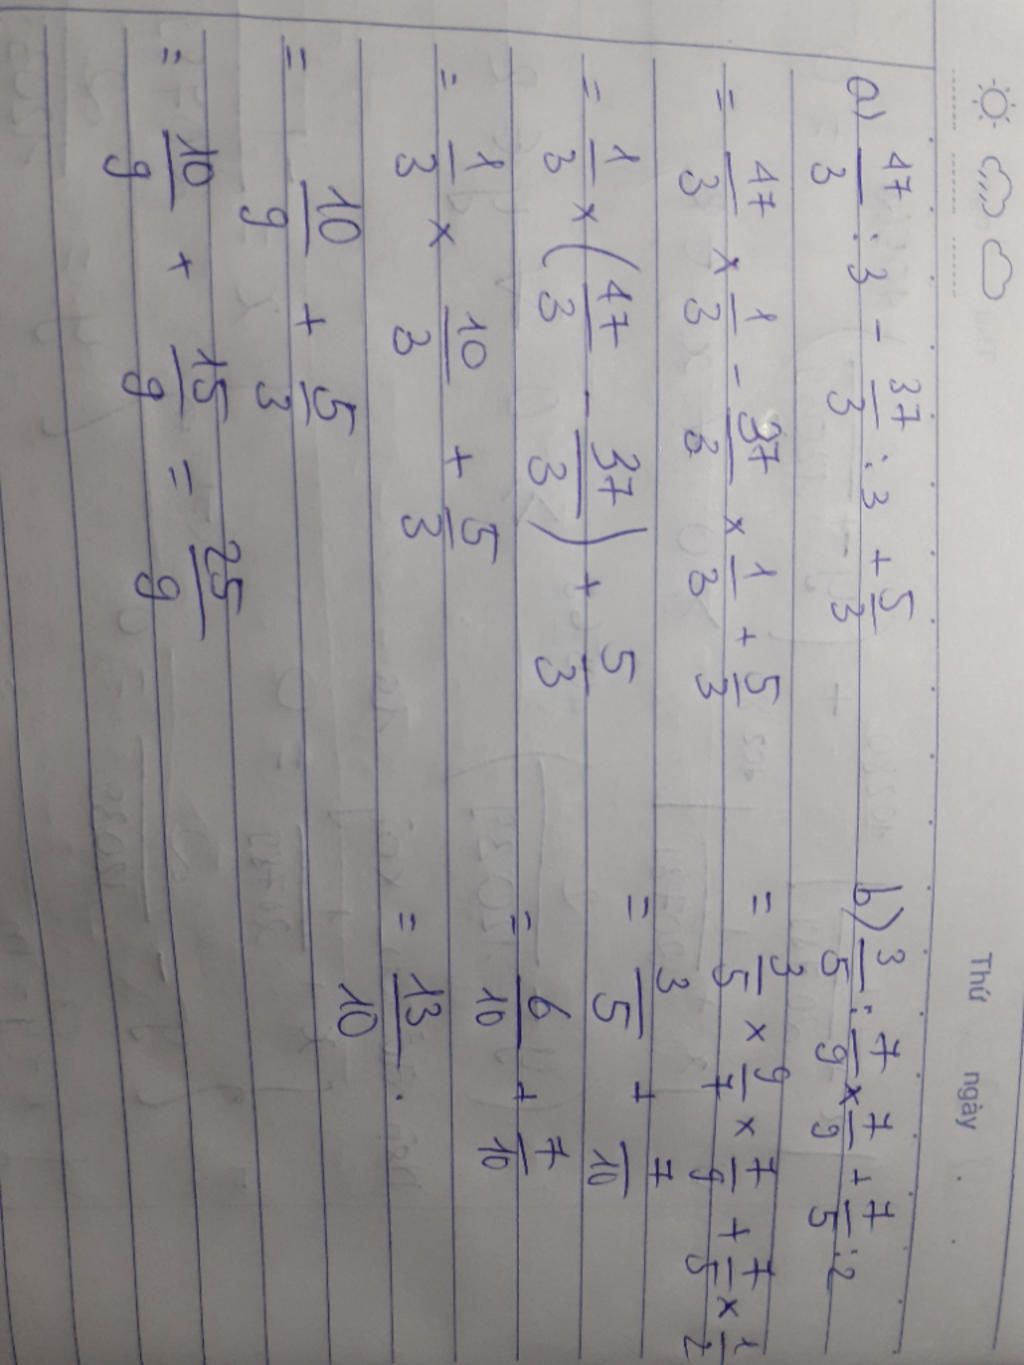 Thứ ngày
a) 47/3 : 3 - 37/3 : 3 + 5/3
= 47/3 × 1/3 - 37/3 × 1/3 + 5/3
= 1/3 × (47/3 - 37/3) + 5/3
= 1/3 × 10/3 + 5/3
= 10/9 + 5/3
= 10/9 + 15/9 = 25/9
b) 3/5 : 7/9 × 7/9 + 7/5 : 2
= 3/5 × 9/7 × 7/9 + 7/5 × 1/2
= 3/5 + 7/10
= 6/10 + 7/10
= 13/10.